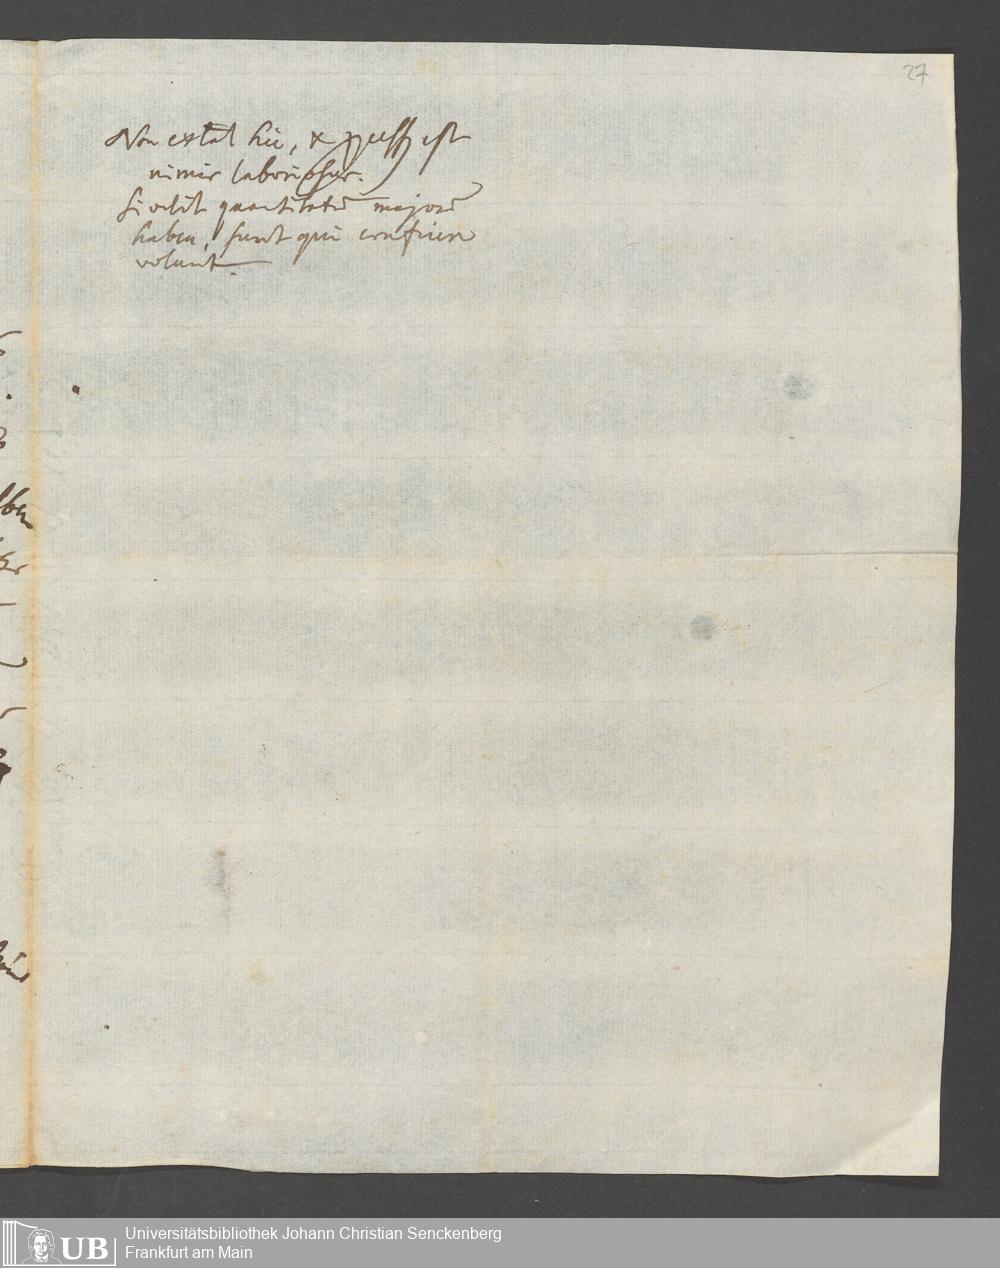 27
Non extat hic, & est
nimis laboriosus.
Si velit quantitatē majorē
habere, sunt qui conficere
volunt.
UB
Universitätsbibliothek Johann Christian Senckenberg
Frankfurt am Main